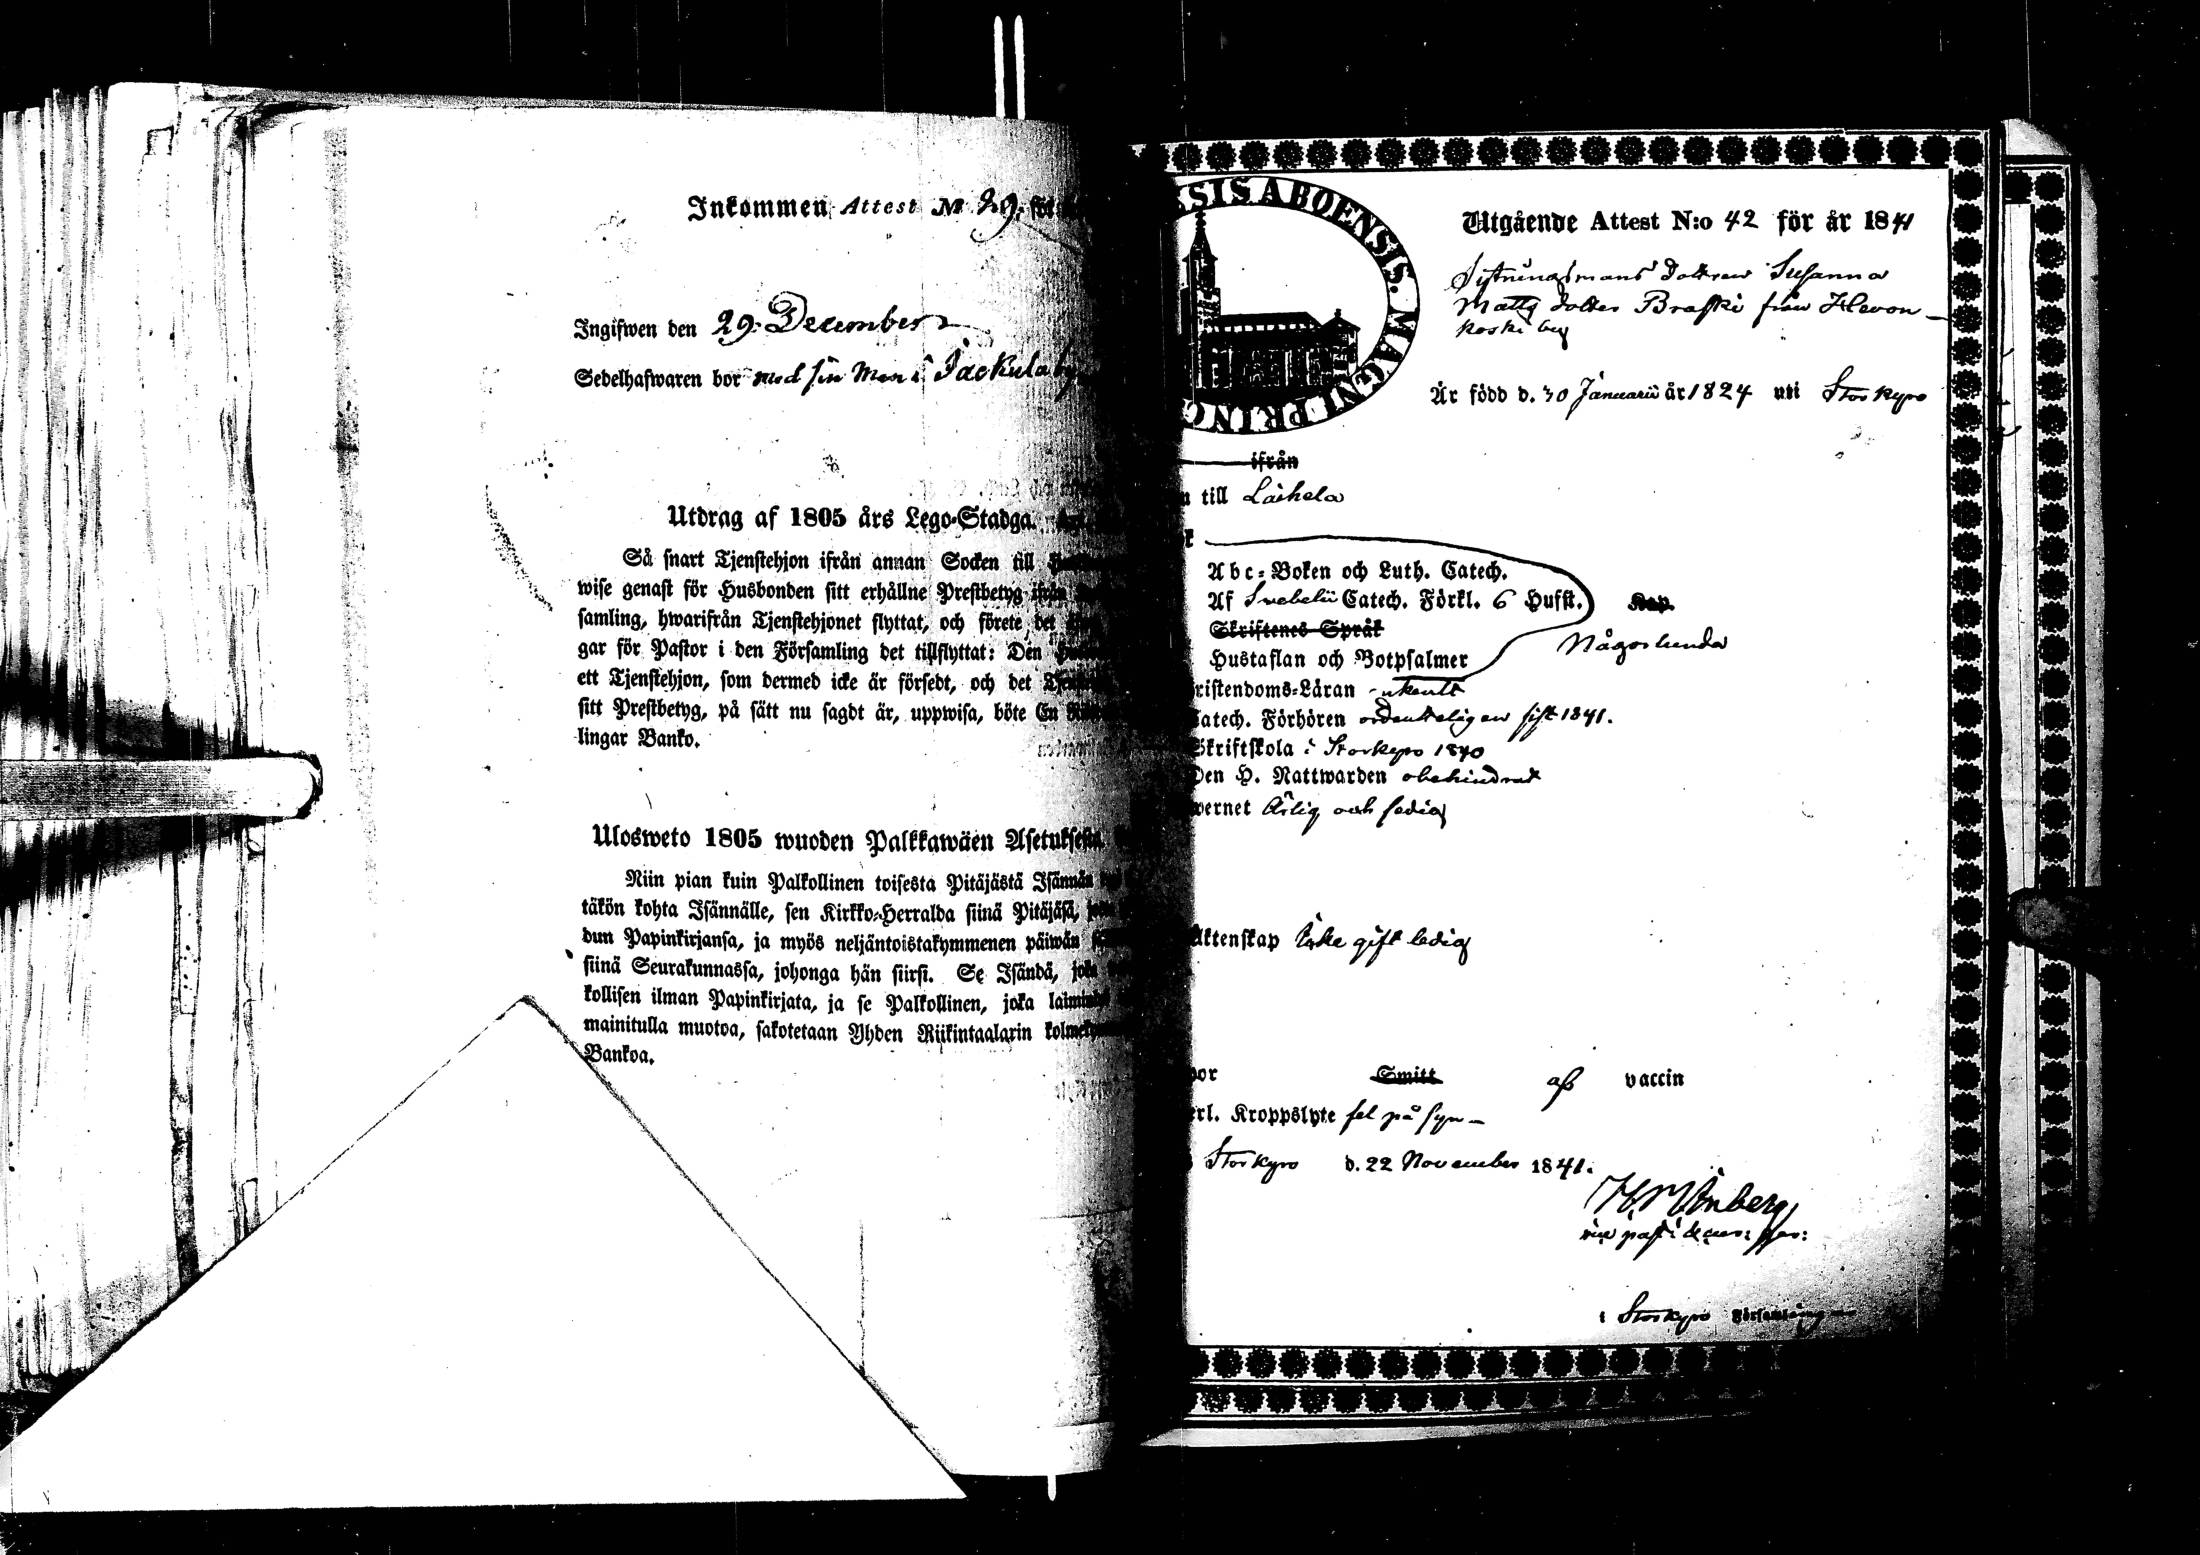 Inkommen Attest No 29. för
Ingifwen den 29. December
Sedelhafwaren bor med sin Man i Jackula by
Utdrag af 1805 års Lego-Stadga.
Så snart Tjenstehjon ifrån annan Socken till
wise genast för Husbonden sitt erhållne Prestbetyg ifrån
samling, hwarifrån Tjenstehjonet flyttat, och förete det
gar för Pastor i den Församling det tillflyttat: Den
ett Tjenstehjon, som dermed icke är försedt, och det
sitt Prestbetyg, på sätt nu sagdt är, uppwisa, böte En
lingar Banko.
Ulosweto 1805 wuoden Palkkawäen Asetuksesta.
Niin pian kuin Palkollinen toisesta Pitäjästä Isännän
täkön kohta Isännälle, sen Kirkko-Herralda siinä Pitäjäsä,
dun Papinkirjansa, ja myös neljäntoistakymmenen päiwän
siinä Seurakunnassa, johonga hän siirsi. Se Isändä, joka
kollisen ilman Papinkirjata, ja se Palkollinen, joka
mainitulla muotoa, sakotetaan Yhden Riikintaalarin
Bankoa.
SSIS ABOENSIS. MAGNI PRINC
Utgående Attest N:o 42 för år 1841
dottren Susanna
Matts dotter Braski från Hevon-
koski by
Är född d. 30 Januarii år 1824 uti Storkyro
ifrån
till Laihela
Abc-Boken och Luth. Catech.
Af Svebelii Catech. Förkl. 6 Hufst. Kap.
Skriftenes Språk
Någorlunda
Hustaflan och Botpsalmer
ristendoms-Läran
atech. Förhören ordenteligen sist 1841.
Skriftskola i Storkyro 1840
Den H. Nattwarden obehindrad
wernet Ärlig och sedig
Äktenskap Icke gift ledig
por Smitt af vaccin
erl. Kroppslyte fel på syn-
Storkyro d. 22 November 1841.
i Storkyro Församling